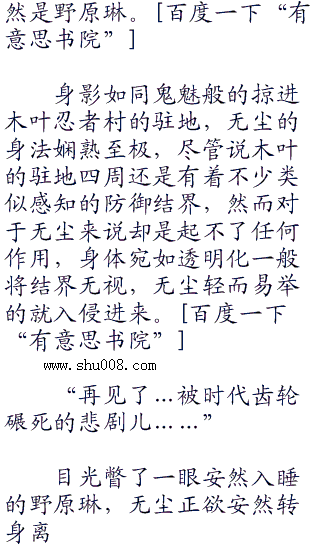 然是野原琳。[百度一下“有
意思书院”]
身影如同鬼魅般的掠进
木叶忍者村的驻地，无尘的
身法娴熟至极，尽管说木叶
的驻地四周还是有着不少类
似感知的防御结界，然而对
于无尘来说却是起不了任何
作用，身体宛如透明化一般
将结界无视，无尘轻而易举
的就入侵进来。[百度一下
“有意思书院”]
www.shu008.com
“再见了…被时代齿轮
碾死的悲剧儿……”
目光瞥了一眼安然入睡
的野原琳，无尘正欲安然转
身离